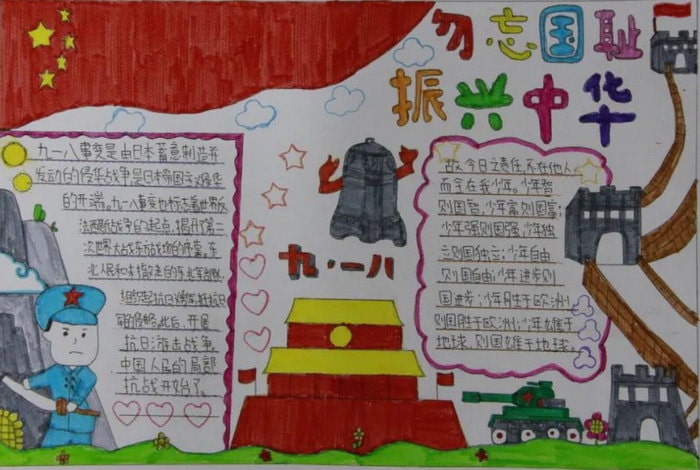 勿忘国耻
振兴中华
九一八事变是由日本蓄意制造并
发动的侵华战争,是日本帝国主义侵华
的开端。九一八事变也标志着世界反
法西斯战争的起点,揭开第二
次世界大战东方战场的序幕。东
北人民和未撤走的东北军部队
组织起抗日义勇军,抵抗日
军侵略,此后,开展
抗日游击战争,
中国人民的局部
抗战开始了。
九·一八
故今日之责任,不在他人,
而全在我少年。少年智
则国智,少年富则国富;
少年强则国强,少年独
立则国独立;少年自由
则国自由;少年进步则
国进步;少年胜于欧洲,
则国胜于欧洲;少年雄于
地球,则国雄于地球。